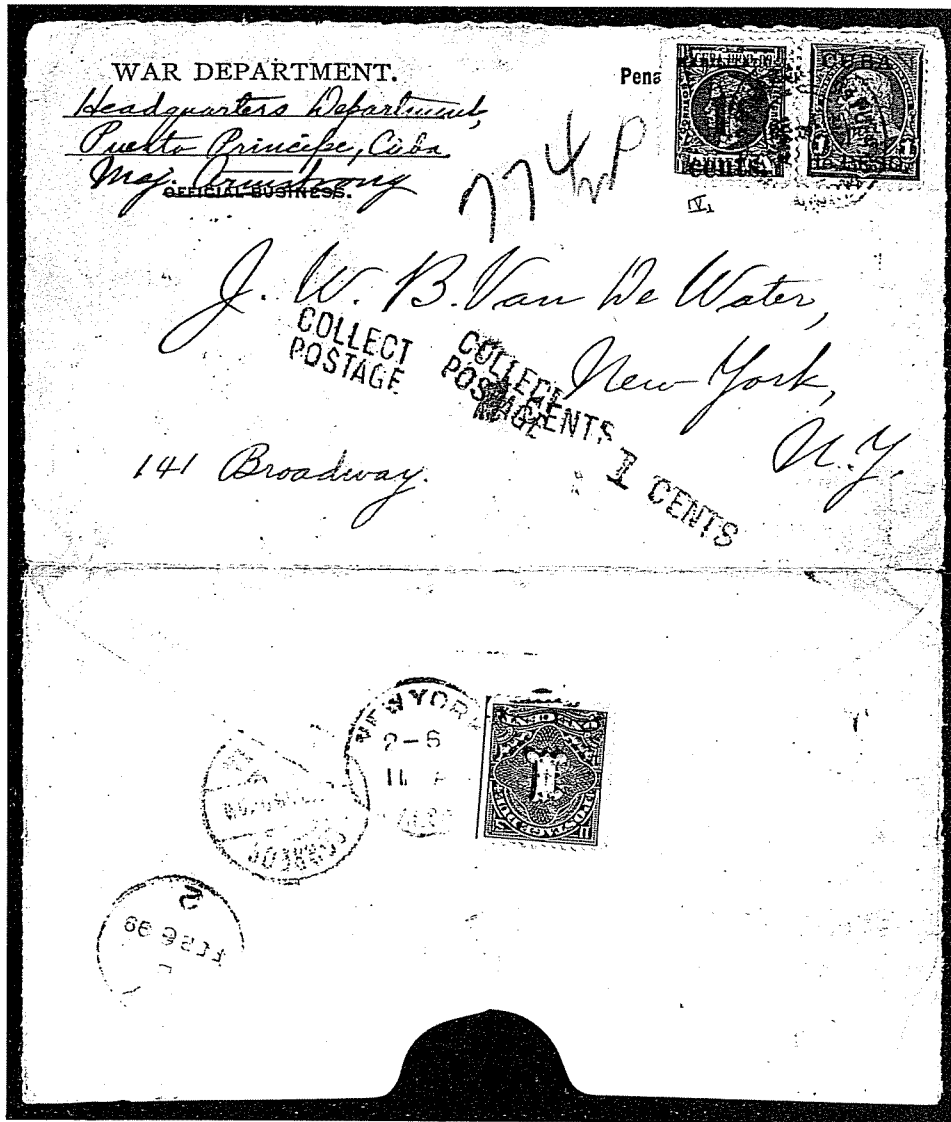 WAR DEPARTMENT.
Headquarters Department,
Puerto Principe, Cuba
Maj. Armstrong
OFFICIAL BUSINESS.
Pena
CENTS.
CUBA
1 1
IV,
774
J. W. B. Van De Water,
New York,
N.Y.
141 Broadway.
COLLECT
POSTAGE
COLLECT
POSTAGE
CENTS
1 CENTS
NEW YORK
2-6
11
CORREOS
1
POSTAGE DUE
2
FEB 6 99